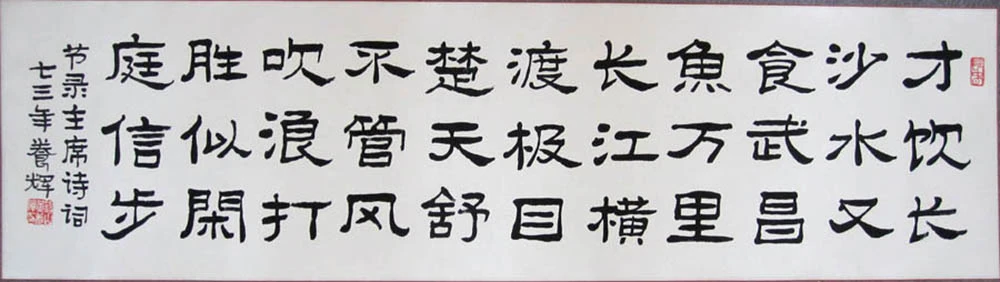 才饮长
沙水又
食武昌
魚万里
长江横
渡极目
楚天舒
不管风
吹浪打
胜似閑
庭信步
节录主席诗词
七三年養辉